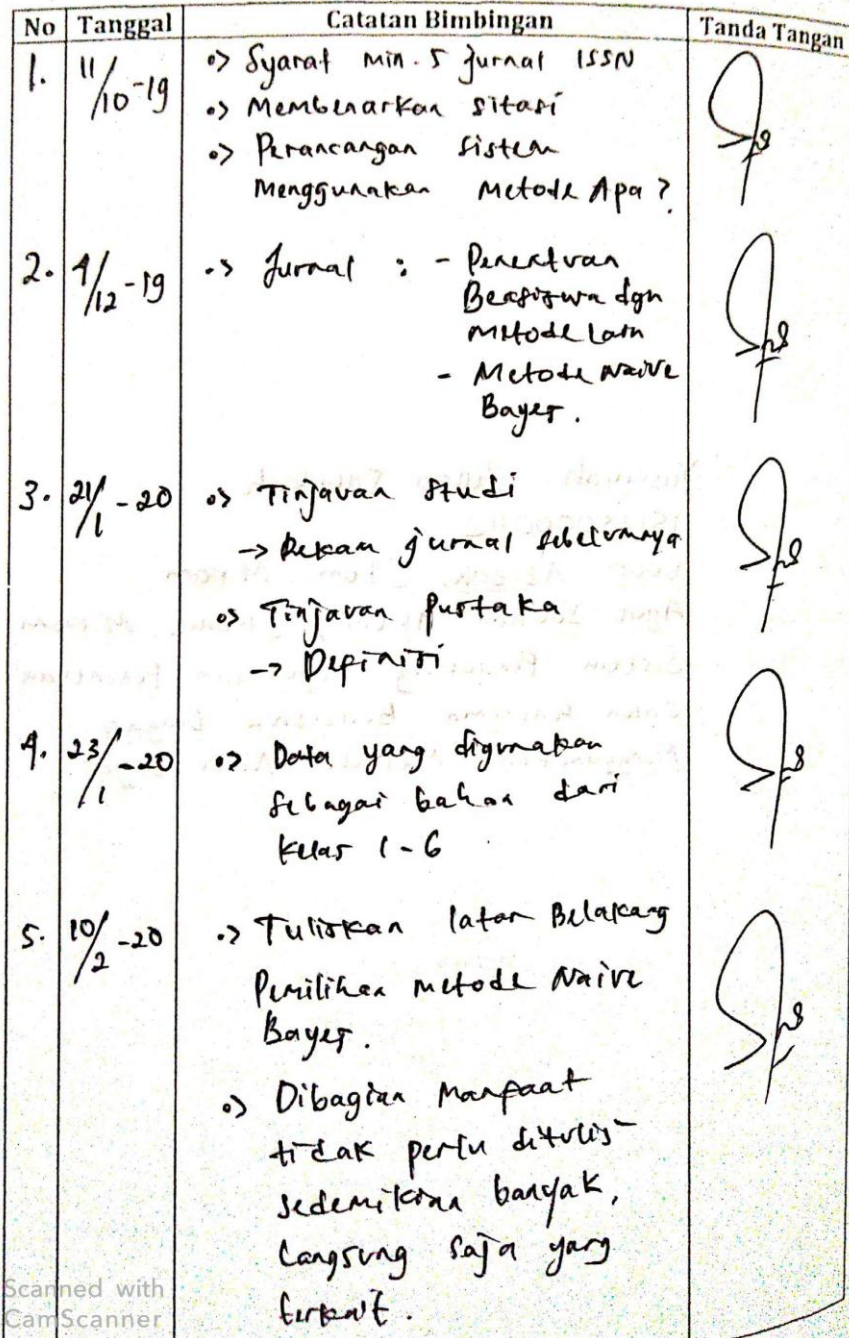 No Tanggal Catatan Bimbingan Tanda Tangan
1. 11/10-19 Syarat min. 5 Jurnal ISSN
Membenarkan sitasi
Perancangan sistem
Menggunakan Metode Apa?
2. 4/12-19 Jurnal : - Penentuan
Beasiswa dgn
metode lain
- Metode Naive
Bayes.
3. 21/1-20 Tinjauan Studi
-> Rekam jurnal sebelumnya
Tinjauan Pustaka
-> Definisi
4. 23/1-20 Data yang digunakan
sebagai bahan dari
kelas 1-6
5. 10/2-20 Tuliskan latar Belakang
Pemilihan metode Naive
Bayes.
Dibagian Manfaat
tidak perlu ditulis
sedemikian banyak,
Langsung saja yang
terkait.
Scanned with
CamScanner